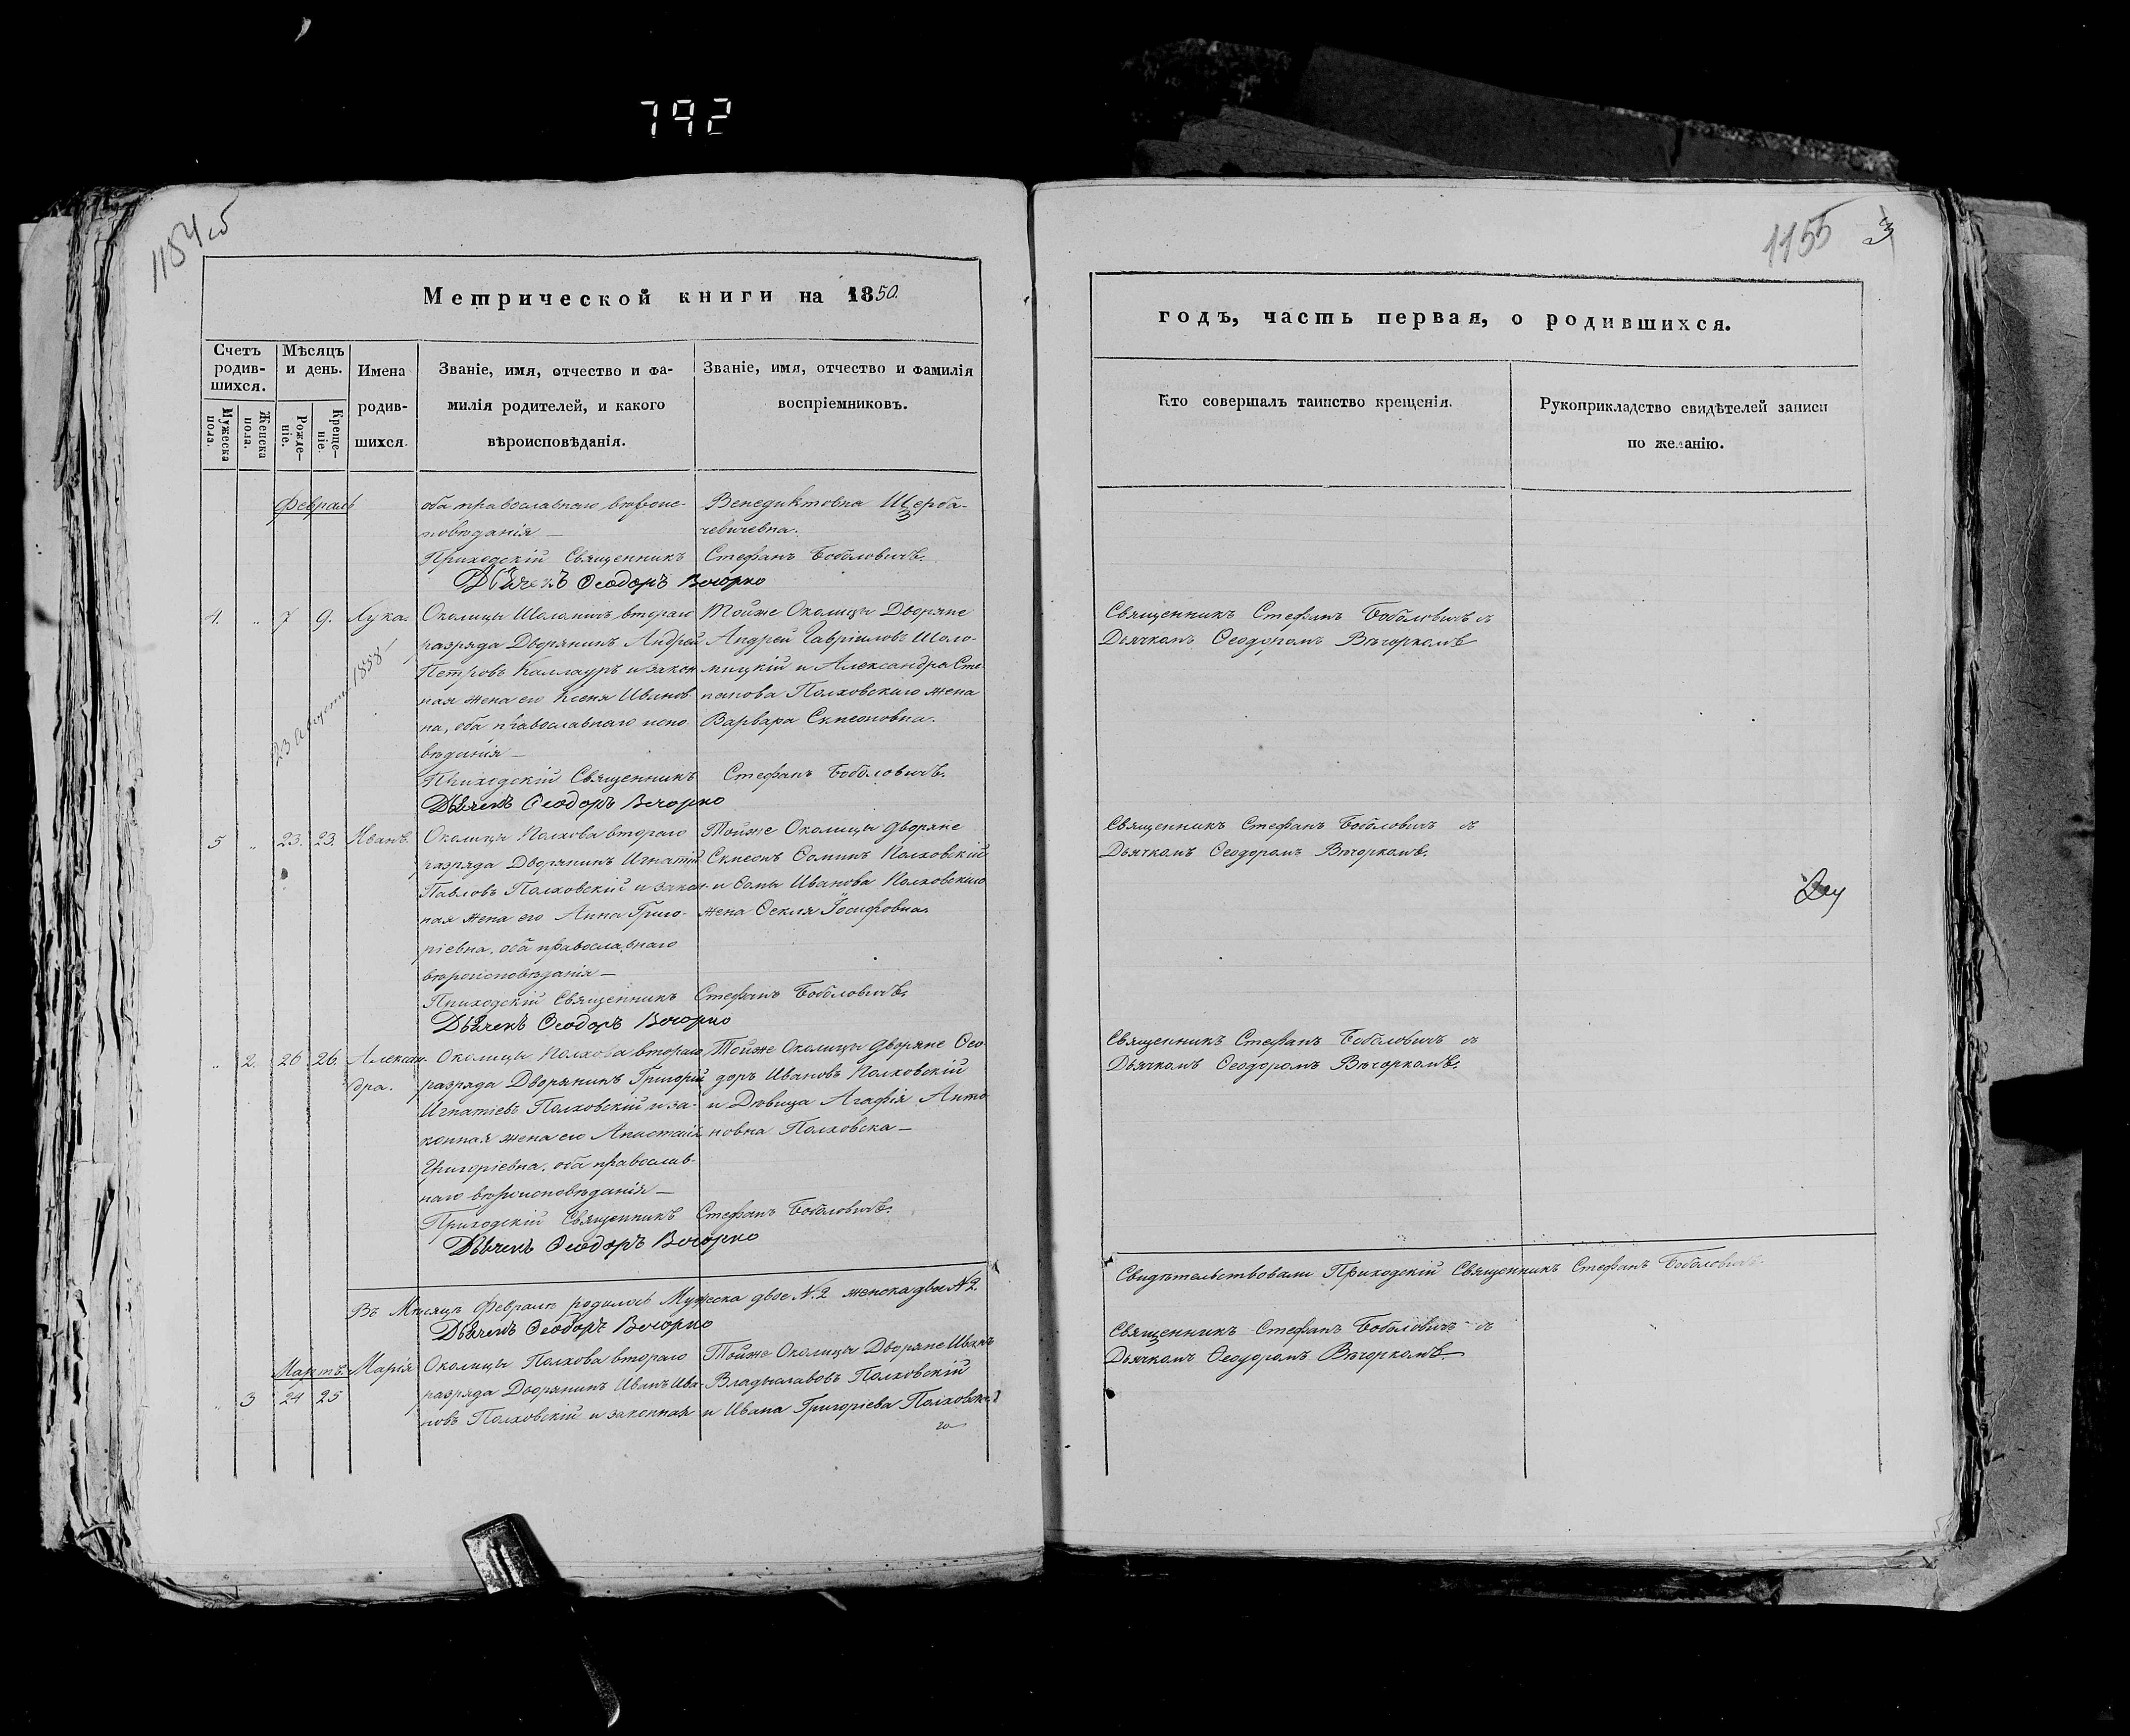 792
1154об
1155
3
Метрической книги на 1850.
Счетъ родив-шихся.
Мужеска пола.
Женска пола.
Мѣсяцъ и день.
Рожде-ніе.
Креще-ніе.
Имена
родив-
шихся.
Званіе, имя, отчество и фа-
милія родителей, и какого
вѣроисповѣданія.
Званіе, имя, отчество и фамилія
воспріемниковъ.
Февраль
оба православнаго вѣроис-
повѣданія —
Приходскій Священникъ Стефанъ Бобловичъ.
Дьячекъ Ѳеодоръ Вечорко
Венедиктовна Щерба-
чевичевна.
4. „ 7 9. Лука.
23 августа 1888
Околицы Шоломичъ втораго
разряда Дворянинъ Андрей
Петровъ Каллауръ и закон
ная жена его Ксенія Иванов
на, оба православнаго испо
вѣданія —
Приходскій Священникъ Стефанъ Бобловичъ.
Дьячекъ Ѳеодоръ Вечорко
Тойже Околицы Дворяне
Андрей Гавріиловъ Шоло-
мицкій и Александра Сте
панова Полховскаго жена
Варвара Семеоновна.
5 „ 23. 23. Иванъ.
Околицы Полхова втораго
разряда Дворянинъ Игнатій
Павловъ Полховскій и закон-
ная жена его Анна Григо-
ріевна, оба православнаго
вѣроисповѣданія —
Приходскій Священникъ Стефанъ Бобловичъ.
Дьячекъ Ѳеодоръ Вечорко
Тойже Околицы Дворяне
Симеонъ Ѳоминъ Полховскій
и Ѳомы Иванова Полховскаго
жена Ѳекля Іосифовна.
„ 2. 26 26. Алексан-
дра.
Околицы Полхова втораго
разряда Дворянинъ Григорій
Игнатіевъ Полховскій и за-
конная жена его Анастасія
Григоріевна, оба православ-
наго вѣроисповѣданія —
Приходскій Священникъ Стефанъ Бобловичъ.
Дьячекъ Ѳеодоръ Вечорко
Тойже Околицы Дворяне Ѳео
доръ Ивановъ Полховскій
и Дѣвица Агафія Анто
новна Полховска —
Въ Мѣсяцѣ Февралѣ родилось Мужеска двое №2 женска двѣ №2.
Дьячекъ Ѳеодоръ Вечорко
Мартъ.
„ 3 24 25 Марія
Околицы Полхова втораго
разряда Дворянинъ Иванъ Ива-
новъ Полховскій и законная
Тойже Околицы Дворяне Иванъ
Владыславовъ Полховскій
и Ивана Григоріева Полховска
го
годъ, часть первая, о родившихся.
Кто совершалъ таинство крещенія.
Рукоприкладство свидѣтелей записи
по желанію.
Священникъ Стефанъ Бобловичъ съ
Дьячкомъ Ѳеодоромъ Вѣчоркомъ
Священникъ Стефанъ Бобловичъ съ
Дьячкомъ Ѳеодоромъ Вѣчоркомъ.
Священникъ Стефанъ Бобловичъ съ
Дьячкомъ Ѳеодоромъ Вѣчоркомъ.
Свидѣтельствовали Приходскій Священникъ Стефанъ Бобловичъ.
Священникъ Стефанъ Бобловичъ съ
Дьячкомъ Ѳеодоромъ Вѣчоркомъ.